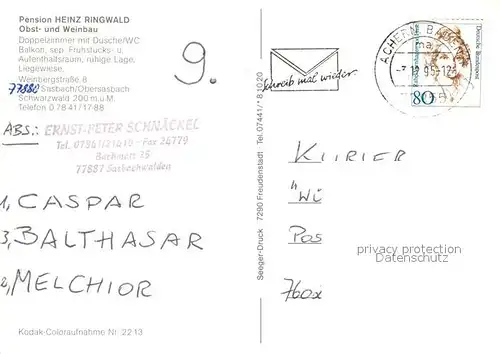 Pension HEINZ RINGWALD
Obst- und Weinbau
Doppelzimmer mit Dusche/WC
Balkon, sep. Frühstücks- u.
Aufenthaltsraum, ruhige Lage,
Liegewiese.
Weinbergstraße 8
77880 Sasbach/Obersasbach
Schwarzwald 200 m.ü.M.
Telefon 0 78 41/17-88
9.
ABS.: ERNST-PETER SCHNÄCKEL
Tel. 07841/21419 - Fax 26779
Bachmatt 35
77887 Sasbachwalden
1, CASPAR
3, BALTHASAR
2, MELCHIOR
Kodak-Coloraufnahme Nr. 2213
Seeger-Druck 7290 Freudenstadt Tel. 07441/*8 10 20
Schreib mal wieder.
ACHERN, BADEN
80
Deutsche Bundespost
KURIER
"Wi
Pos
760x
privacy protection
Datenschutz